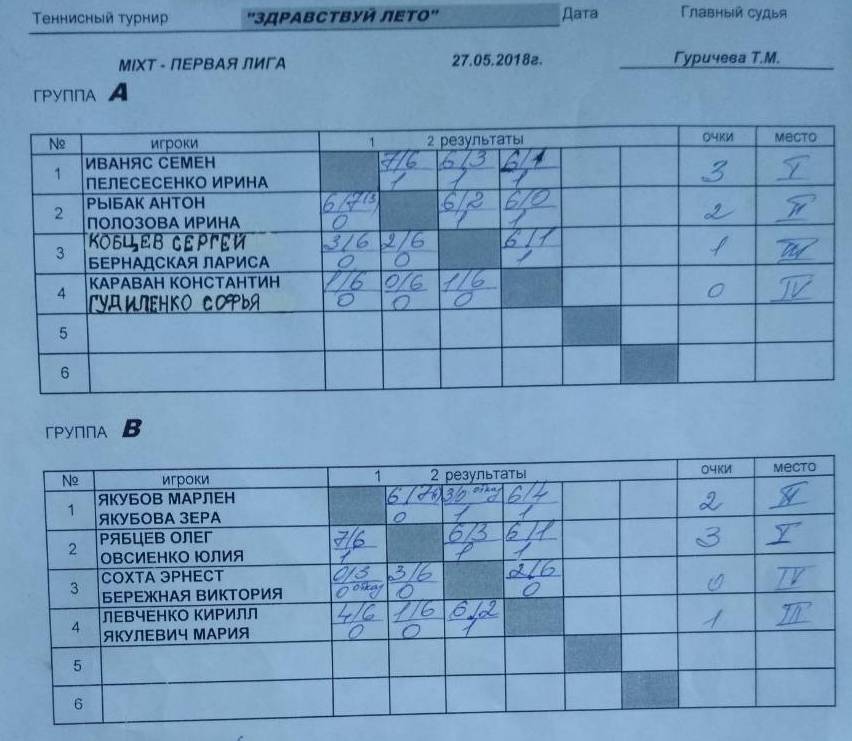 Теннисный турнир "ЗДРАВСТВУЙ ЛЕТО" Дата Главный судья
MIXT - ПЕРВАЯ ЛИГА 27.05.2018г. Гуричева Т.М.
ГРУППА А
№ игроки 1 2 результаты очки место
1 ИВАНЯС СЕМЕН 7/6 6/3 6/1 3 I
ПЕЛЕСЕСЕНКО ИРИНА 1 1 1
2 РЫБАК АНТОН 6/7(3) 6/2 6/0 2 II
ПОЛОЗОВА ИРИНА 0 1 1
3 КОБЦЕВ СЕРГЕЙ 3/6 2/6 6/1 1 III
БЕРНАДСКАЯ ЛАРИСА 0 0 1
4 КАРАВАН КОНСТАНТИН 1/6 0/6 1/6 0 IV
ГУДИЛЕНКО СОФЬЯ 0 0 0
5
6
ГРУППА В
№ игроки 1 2 результаты очки место
1 ЯКУБОВ МАРЛЕН 3/0 отказ 6/4 2 II
ЯКУБОВА ЗЕРА 0 1 1
2 РЯБЦЕВ ОЛЕГ 7/6 6/3 6/1 3 I
ОВСИЕНКО ЮЛИЯ 1 1 1
3 СОХТА ЭРНЕСТ 0/3 3/6 2/6 0 IV
БЕРЕЖНАЯ ВИКТОРИЯ 0 отказ 0 0
4 ЛЕВЧЕНКО КИРИЛЛ 4/6 1/6 6/2 1 III
ЯКУЛЕВИЧ МАРИЯ 0 0 1
5
6